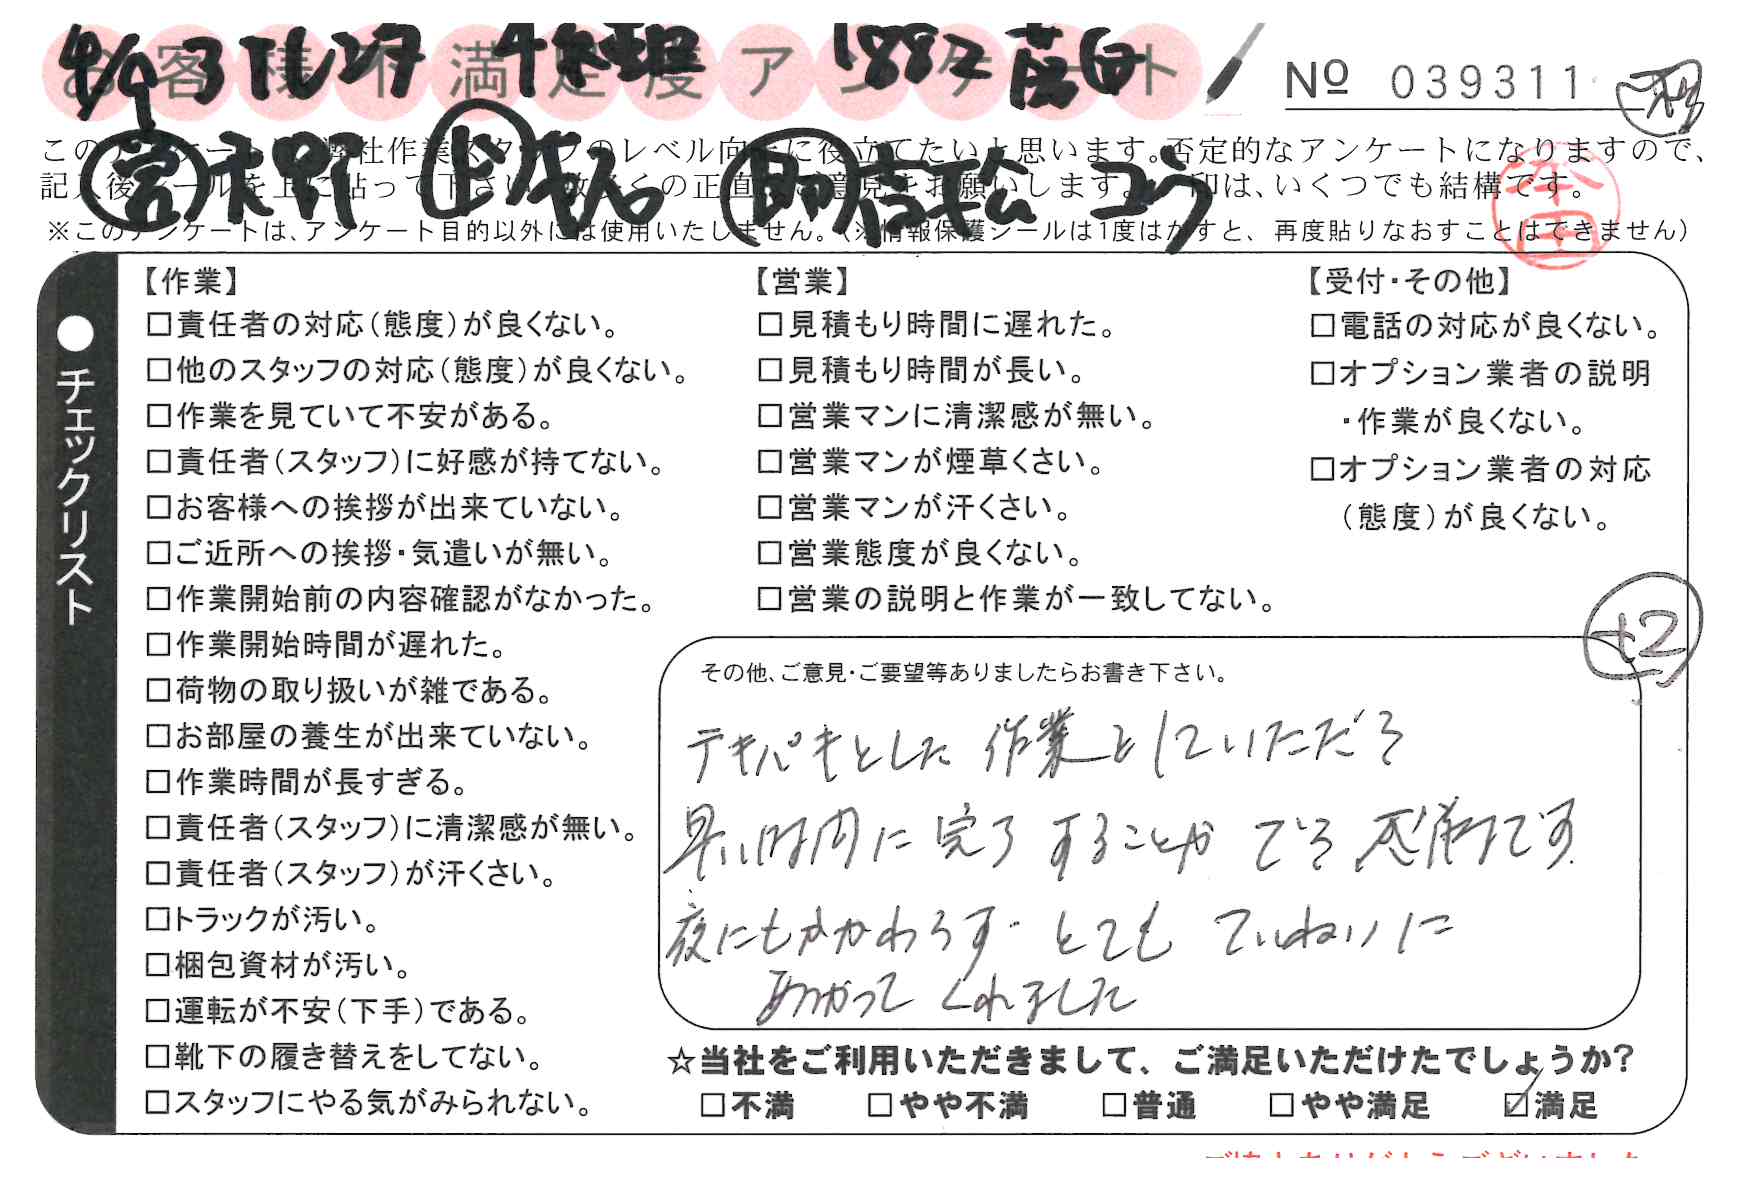 お客様不満足度アンケート
№ 039311
このアンケートは、弊社作業スタッフのレベル向上に役立てたいと思います。否定的なアンケートになりますので、
記入後シールを上に貼って下さい。数多くの正直なご意見をお願いします。 印は、いくつでも結構です。
※このアンケートは、アンケート目的以外には使用いたしません。(※情報保護シールは1度はがすと、再度貼りなおすことはできません)
本田
●チェックリスト
【作業】
□責任者の対応(態度)が良くない。
□他のスタッフの対応(態度)が良くない。
□作業を見ていて不安がある。
□責任者(スタッフ)に好感が持てない。
□お客様への挨拶が出来ていない。
□ご近所への挨拶・気遣いが無い。
□作業開始前の内容確認がなかった。
□作業開始時間が遅れた。
□荷物の取り扱いが雑である。
□お部屋の養生が出来ていない。
□作業時間が長すぎる。
□責任者(スタッフ)に清潔感が無い。
□責任者(スタッフ)が汗くさい。
□トラックが汚い。
□梱包資材が汚い。
□運転が不安(下手)である。
□靴下の履き替えをしてない。
□スタッフにやる気がみられない。
【営業】
□見積もり時間に遅れた。
□見積もり時間が長い。
□営業マンに清潔感が無い。
□営業マンが煙草くさい。
□営業マンが汗くさい。
□営業態度が良くない。
□営業の説明と作業が一致してない。
【受付・その他】
□電話の対応が良くない。
□オプション業者の説明
・作業が良くない。
□オプション業者の対応
(態度)が良くない。
+2
その他、ご意見・ご要望等ありましたらお書き下さい。
テキパキとした作業をしていただき
早い時間に完了することができ感謝です
夜にもかかわらず とても ていねいに
あつかって くれました
☆当社をご利用いただきまして、ご満足いただけたでしょうか?
□不満 □やや不満 □普通 □やや満足 ☑満足